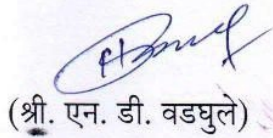 (श्री. एन. डी. वडघुले)